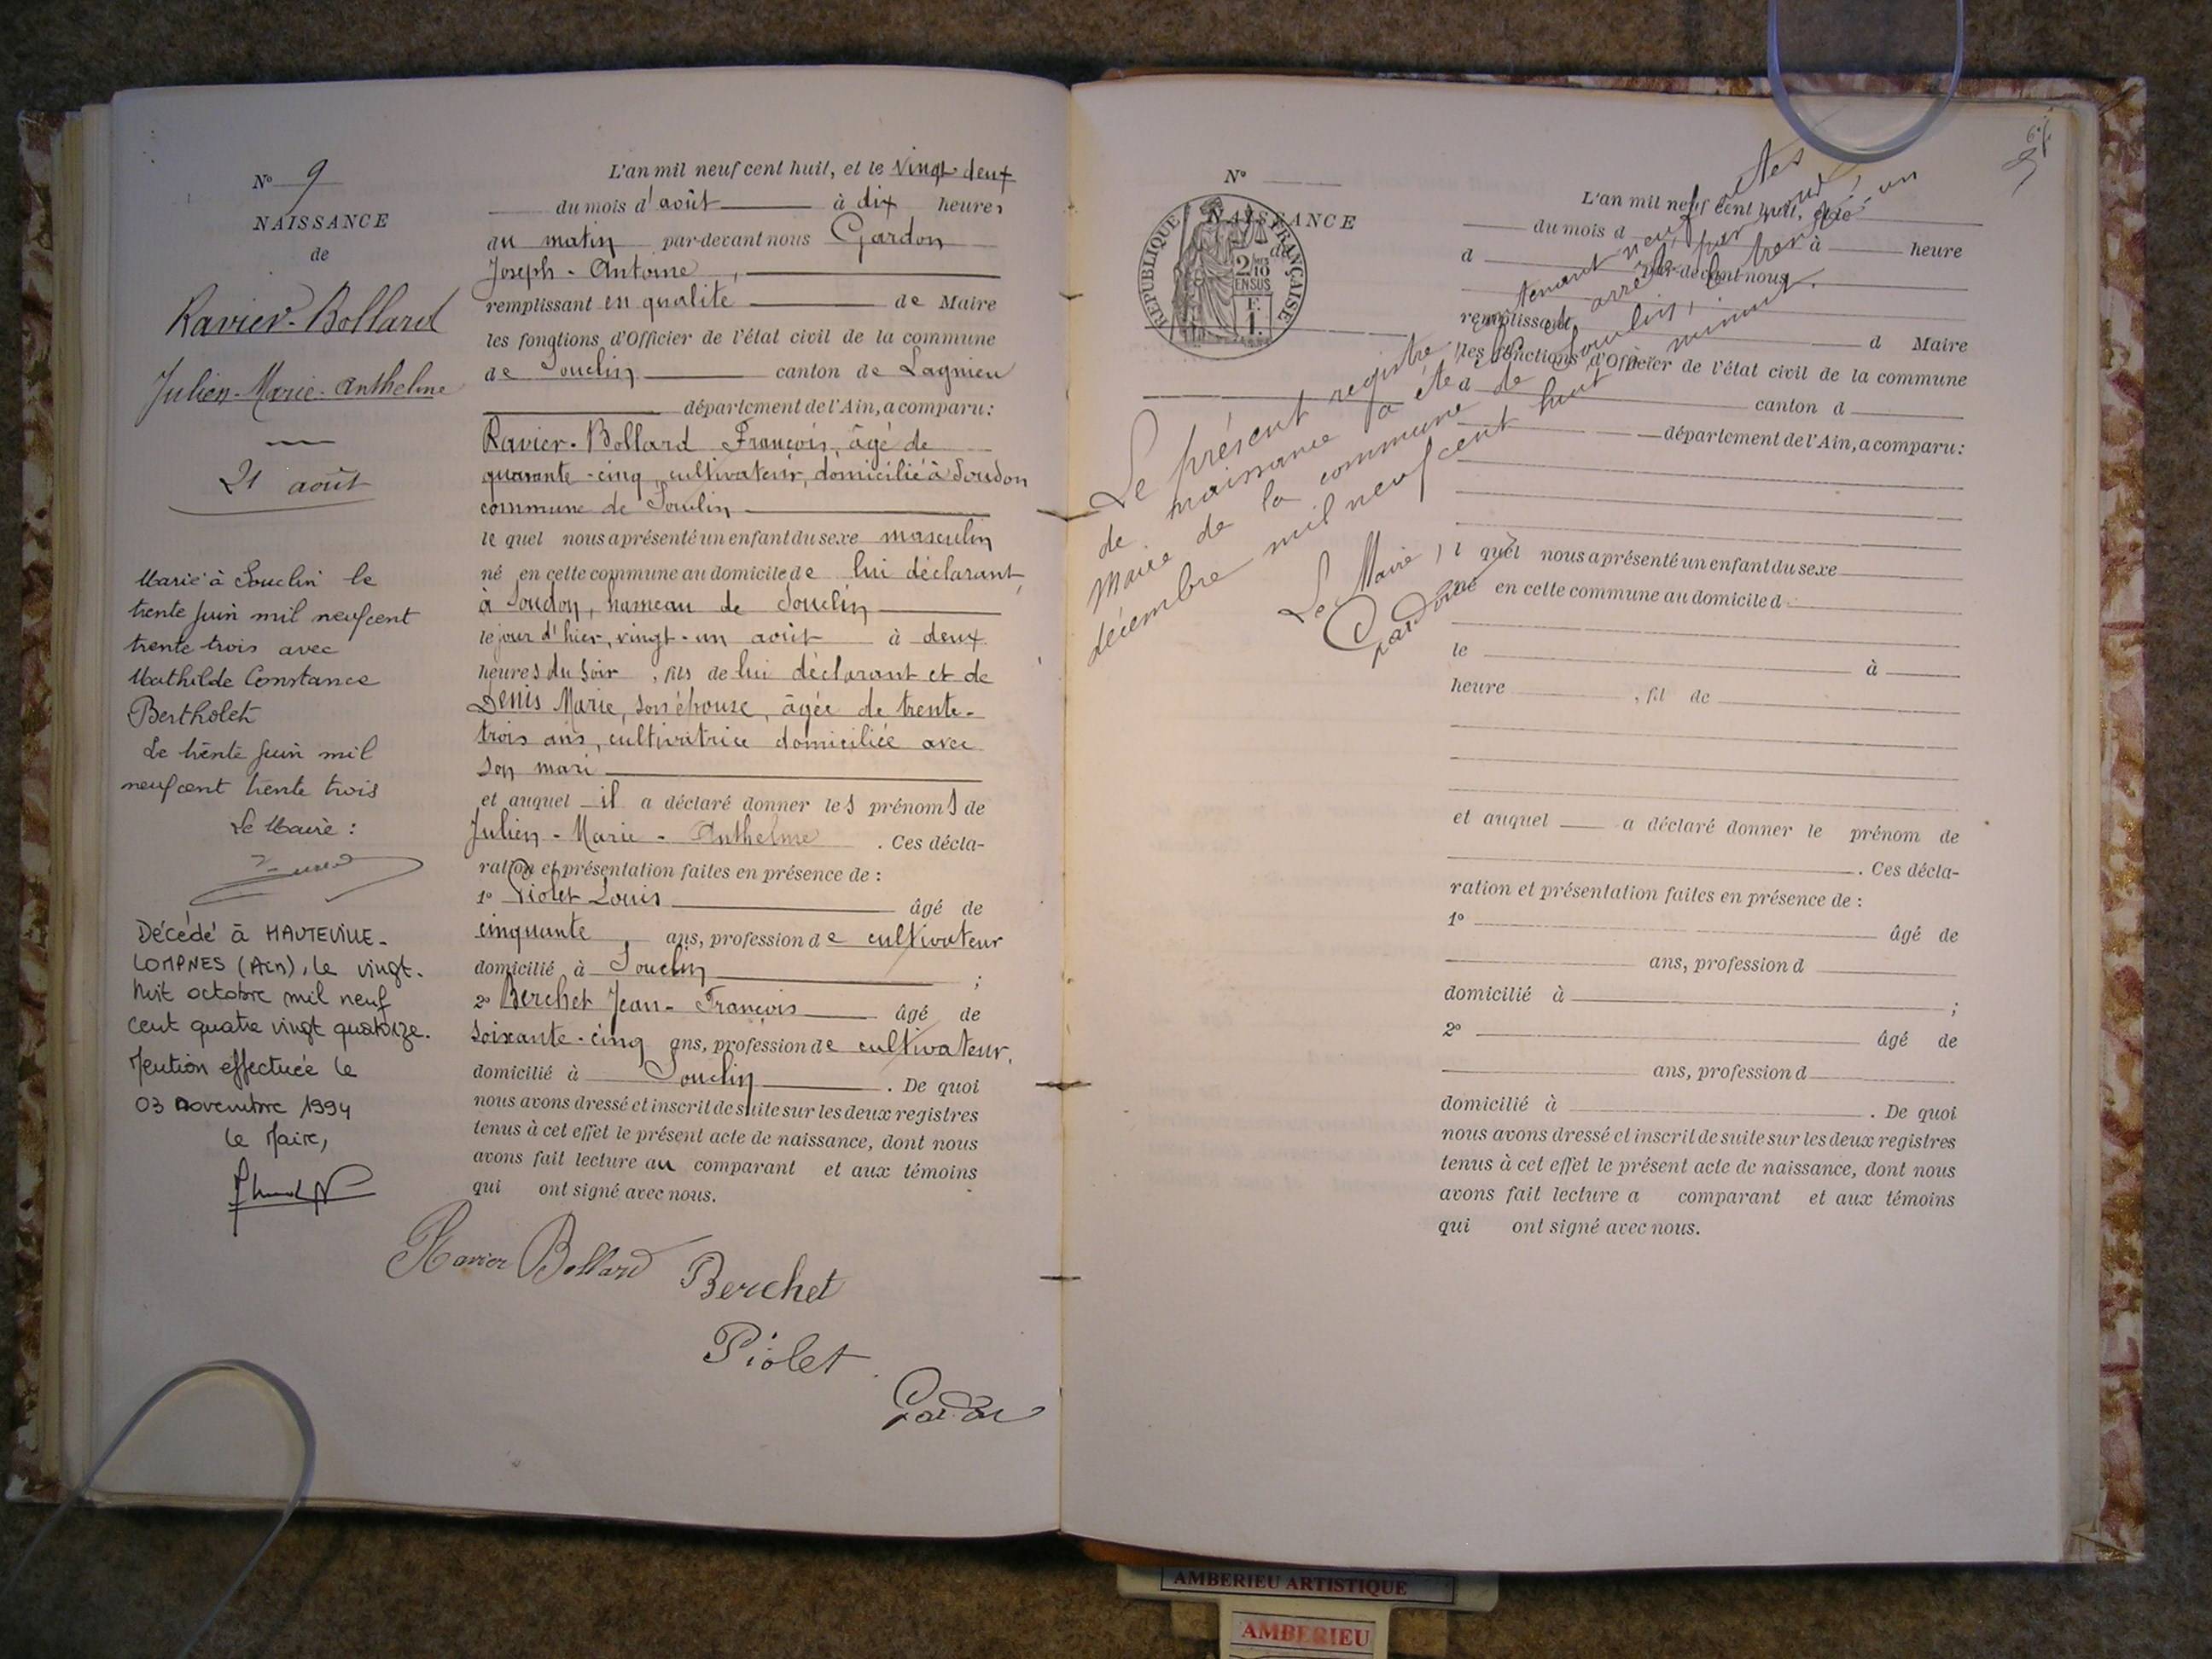 N° 9
NAISSANCE
de
Ravier-Bollard
Julien-Marie-Anthelme
21 août
Marié à Souclin le
trente juin mil neuf cent
trente trois avec
Mathilde Constance
Bertholet
Le trente juin mil
neuf cent trente trois
Le Maire :
Décédé à HAUTEVILLE-
LOMPNES (Ain), le vingt-
huit octobre mil neuf
cent quatre vingt quatorze.
Mention effectuée le
03 novembre 1994
Le Maire,
L'an mil neuf cent huit, et le vingt-deux
du mois d'août à dix heures
du matin par-devant nous Gardon
Joseph-Antoine,
remplissant en qualité de Maire
les fonctions d'Officier de l'état civil de la commune
de Souclin canton de Lagnieu
département de l'Ain, a comparu :
Ravier-Bollard François, âgé de
quarante-cinq, cultivateur, domicilié à Soudon
commune de Souclin
le quel nous a présenté un enfant du sexe masculin
né en cette commune au domicile de lui déclarant,
à Soudon, hameau de Souclin
le jour d'hier, vingt-un août à deux
heures du soir, fils de lui déclarant et de
Denis Marie, son épouse, âgée de trente-
trois ans, cultivatrice domiciliée avec
son mari
et auquel il a déclaré donner les prénoms de
Julien-Marie-Anthelme. Ces décla-
ration et présentation faites en présence de :
1° Piolet Louis âgé de
cinquante ans, profession de cultivateur
domicilié à Souclin ;
2° Berchet Jean-François âgé de
soixante-cinq ans, profession de cultivateur,
domicilié à Souclin. De quoi
nous avons dressé et inscrit de suite sur les deux registres
tenus à cet effet le présent acte de naissance, dont nous
avons fait lecture au comparant et aux témoins
qui ont signé avec nous.
Ravier Bollard
Berchet
Piolet
Gardon
N°
NAISSANCE
de
RÉPUBLIQUE FRANÇAISE
2/10
EN SUS
F.
1.
L'an mil neuf cent huit, et le
du mois d à heure
d par-devant nous
remplissant d Maire
les fonctions d'Officier de l'état civil de la commune
d canton d
département de l'Ain, a comparu :
l quel nous a présenté un enfant du sexe
né en cette commune au domicile d
le à
heure , fil de
et auquel a déclaré donner le prénom de
. Ces décla-
ration et présentation faites en présence de :
1° âgé de
ans, profession d
domicilié à ;
2° âgé de
ans, profession d
domicilié à . De quoi
nous avons dressé et inscrit de suite sur les deux registres
tenus à cet effet le présent acte de naissance, dont nous
avons fait lecture a comparant et aux témoins
qui ont signé avec nous.
Le présent registre contenant neuf actes
de naissance a été clos et arrêté par nous,
Maire de la commune de Souclin, le trente-un
décembre mil neuf cent huit à minuit.
Le Maire,
Gardon
AMBERIEU ARTISTIQUE
AMBERIEU